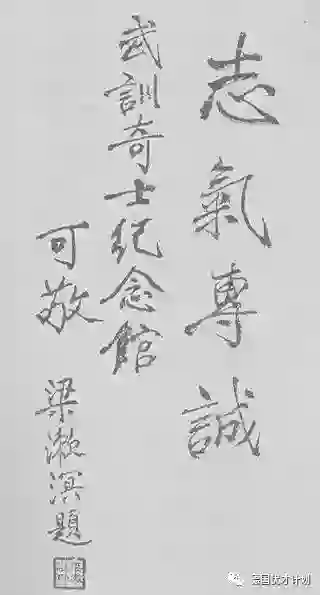 志氣專誠
武訓奇士纪念館
可敬
梁漱溟題
强国优才计划